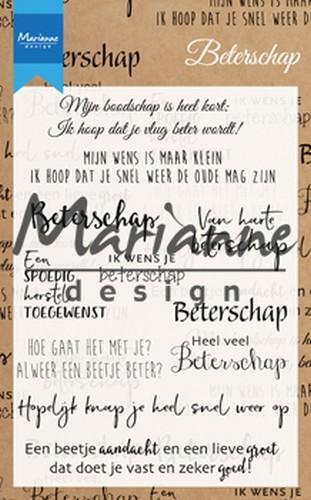 Marianne
design
Beterschap
MIJN WENS IS
IK HOOP DAT JE SNEL WEER DE
Beterschap
Mijn boodschap is heel kort:
Ik hoop dat je vlug beter wordt!
MIJN WENS IS MAAR KLEIN
IK HOOP DAT JE SNEL WEER DE OUDE MAG ZIJN
Beterschap
Van harte
beterschap
Marianne
design
Een
SPOEDIG
herstel
TOEGEWENST
IK WENS JE
beterschap
Beterschap
HOE GAAT HET MET JE?
ALWEER EEN BEETJE BETER?
Heel veel
Beterschap
Hopelijk knap je heel snel weer op
Een beetje aandacht en een lieve groet
dat doet je vast en zeker goed!